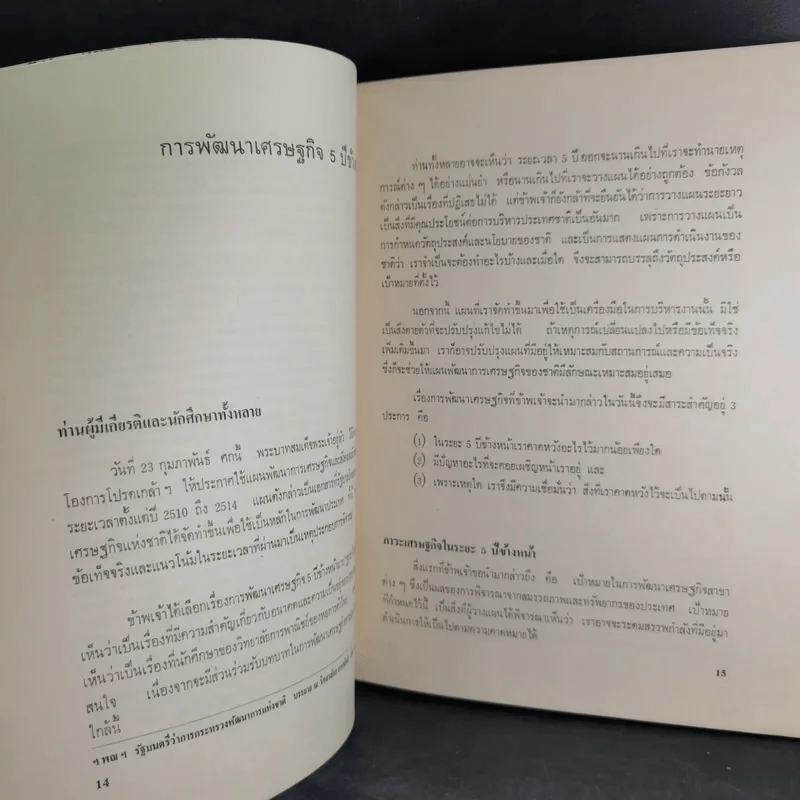 การพัฒนาเศรษฐกิจ 5 ปีข้าง
ท่านผู้มีเกียรติและนักศึกษาทั้งหลาย
วันที่ 23 กุมภาพันธ์ ศกนี้ พระบาทสมเด็จพระเจ้าอยู่หัว
โองการโปรดเกล้าฯ ให้ประกาศใช้แผนพัฒนาการเศรษฐกิจและสังคม
ระยะเวลาตั้งแต่ปี 2510 ถึง 2514 แผนดังกล่าวเป็นเอกสารที่
เศรษฐกิจแห่งชาติได้จัดทำขึ้นเพื่อใช้เป็นหลักในการพัฒนาประเทศ
ข้อเท็จจริงและแนวโน้มในระยะเวลาที่ผ่านมาเป็นเหตุประกอบการพิจาร
ข้าพเจ้าได้เลือกเรื่องการพัฒนาเศรษฐกิจ 5 ปีข้างหน้ามา
เห็นว่าเป็นเรื่องที่มีความสำคัญเกี่ยวกับอนาคตและความเป็นอยู่ของ
เห็นว่าเป็นเรื่องที่นักศึกษาของวิทยาลัยการพาณิชย์ของหอการค้าไทย
สนใจ เนื่องจากจะมีส่วนร่วมรับบทบาทในการพัฒนาเศรษฐกิจ
ใกล้นี้
ฯ พณ ฯ รัฐมนตรีว่าการกระทรวงพัฒนาการแห่งชาติ บรรยาย ณ
14
ท่านทั้งหลายอาจจะเห็นว่า ระยะเวลา 5 ปี ออกจะนานเกินไปที่เราจะทำนายเหตุ
การณ์ต่าง ๆ ได้อย่างแม่นยำ หรือนานเกินไปที่เราจะวางแผนได้อย่างถูกต้อง ข้อกังวล
ดังกล่าวเป็นเรื่องที่ปฏิเสธไม่ได้ แต่ข้าพเจ้าก็ยังกล้าที่จะยืนยันได้ว่าการวางแผนระยะยาว
เป็นสิ่งที่มีคุณประโยชน์ต่อการบริหารประเทศชาติเป็นอันมาก เพราะการวางแผนเป็น
การกำหนดวัตถุประสงค์และนโยบายของชาติ และเป็นการแสดงแผนการดำเนินงานของ
ชาติว่า เราจำเป็นจะต้องทำอะไรบ้างและเมื่อใด จึงจะสามารถบรรลุถึงวัตถุประสงค์หรือ
เป้าหมายที่ตั้งไว้
นอกจากนี้ แผนที่เราจัดทำขึ้นมาเพื่อใช้เป็นเครื่องมือในการบริหารงานนั้น มิใช่
เป็นสิ่งตายตัวที่จะปรับปรุงแก้ไขไม่ได้ ถ้าเหตุการณ์เปลี่ยนแปลงไปหรือมีข้อเท็จจริง
เพิ่มเติมขึ้นมา เราก็อาจปรับปรุงแผนที่มีอยู่ให้เหมาะสมกับสถานการณ์และความเป็นจริง
ซึ่งก็จะช่วยให้แผนพัฒนาการเศรษฐกิจของชาติมีลักษณะเหมาะสมอยู่เสมอ
เรื่องการพัฒนาเศรษฐกิจที่ข้าพเจ้าจะนำมากล่าวในวันนี้จึงจะมีสาระสำคัญอยู่ 3
ประการ คือ
(1) ในระยะ 5 ปีข้างหน้าเราคาดหวังอะไรไว้มากน้อยเพียงใด
(2) มีปัญหาอะไรที่จะคอยเผชิญหน้าเราอยู่ และ
(3) เพราะเหตุใด เราจึงมีความเชื่อมั่นว่า สิ่งที่เราคาดหวังไว้จะเป็นไปตามนั้น
ภาวะเศรษฐกิจในระยะ 5 ปีข้างหน้า
สิ่งแรกที่ข้าพเจ้าขอนำมากล่าวถึง คือ เป้าหมายในการพัฒนาเศรษฐกิจสาขา
ต่าง ๆ ซึ่งเป็นผลของการพิจารณาจากสมรรถภาพและทรัพยากรของประเทศ เป้าหมาย
ที่กำหนดไว้นี้ เป็นสิ่งที่ผู้วางแผนได้พิจารณาเห็นว่า เราอาจจะระดมสรรพกำลังที่มีอยู่มา
ดำเนินการให้เป็นไปตามความคาดหมายได้
15